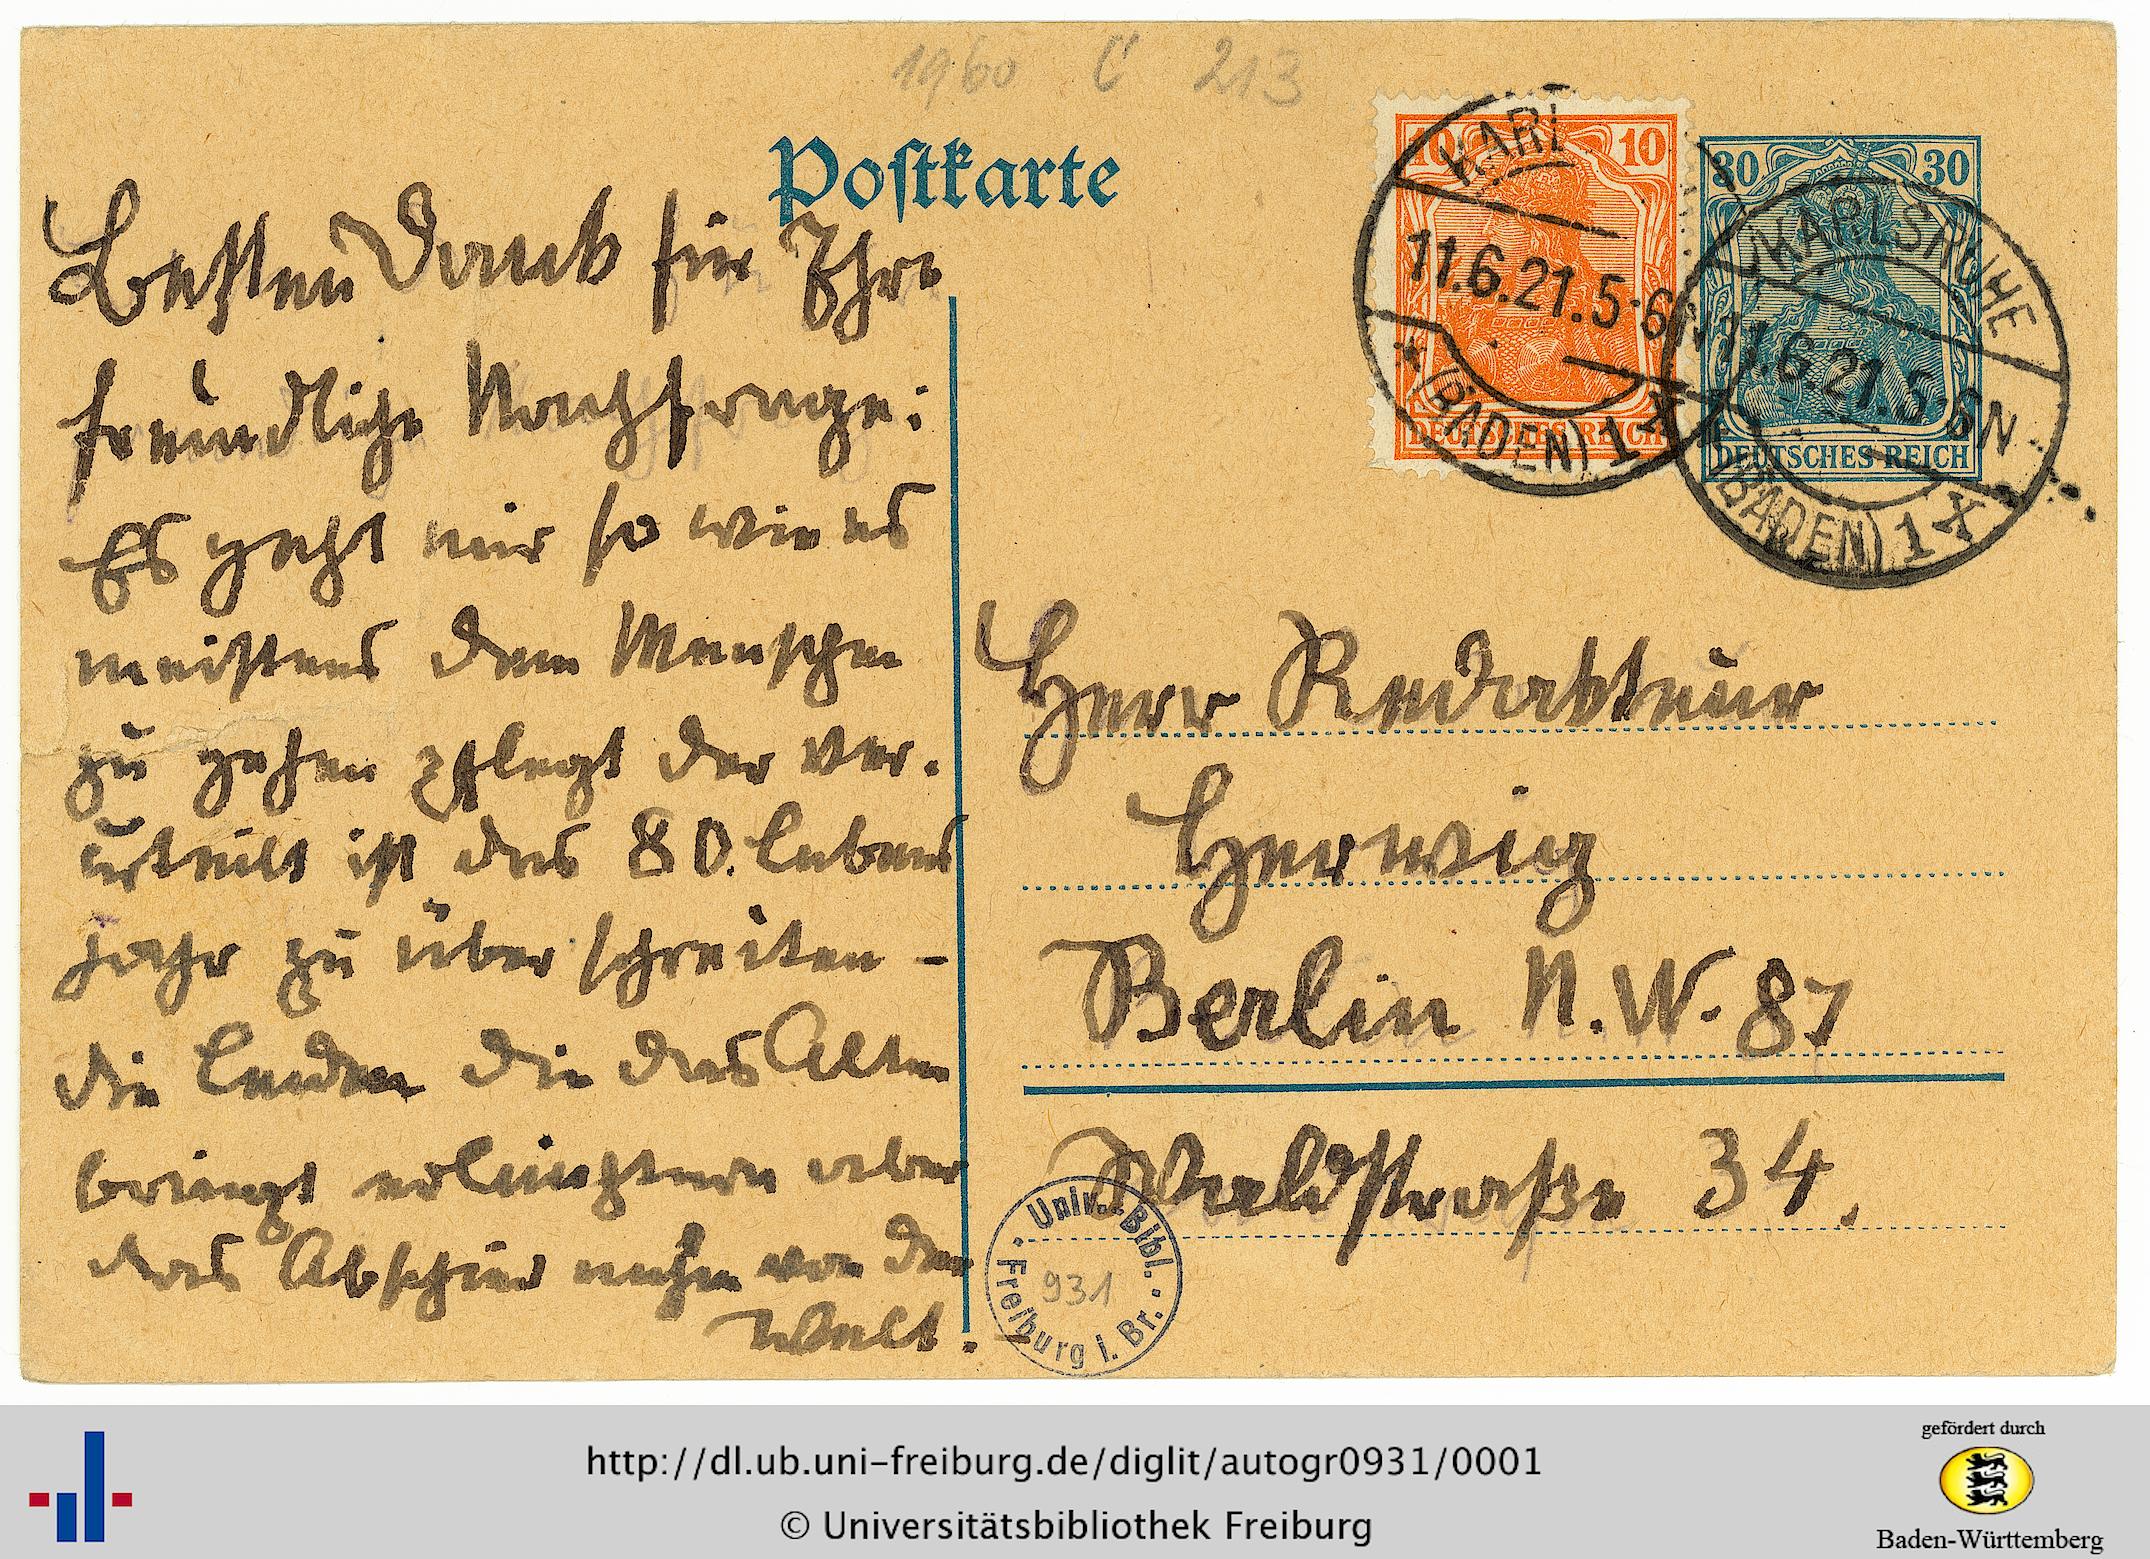 1960 C 213
Postkarte
Besten Dank für Ihre
freundliche Nachfrage:
Es geht mir so wie es
meistens dem Menschen
zu gehen pflegt der ver-
urteilt ist das 80. Lebens
jahr zu überschreiten -
die Leiden die das Alter
bringt erleichtern aber
das Abschied nehm von der
Welt.
10 10
DEUTSCHES REICH
30 30
DEUTSCHES REICH
KARL
11.6.21.5-6
(BADEN) 1X
KARLSRUHE
11.6.21.5-6N
(BADEN) 1X
Herr Redakteur
Herwig
Berlin N.W. 87
Waldstraße 34.
Univ.-Bibl.
Freiburg i. Br.
931
http://dl.ub.uni-freiburg.de/diglit/autogr0931/0001
© Universitätsbibliothek Freiburg
gefördert durch
Baden-Württemberg